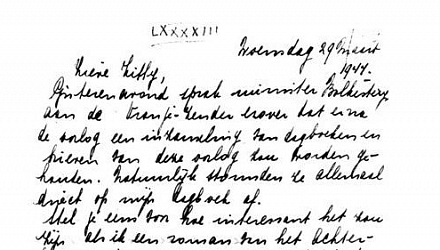 LXXXXIII
Woensdag 29 Maart
1944.
Lieve Kitty,
Gisterenavond sprak minister Bolkesteyn
aan de Oranje-zender erover dat er na
de oorlog een inzameling van dagboeken en
brieven van deze oorlog zou worden ge-
houden. Natuurlijk stormden ze allemaal
direct op mijn dagboek af.
Stel je eens voor hoe interessant het zou
zijn als ik een roman van het Achter-